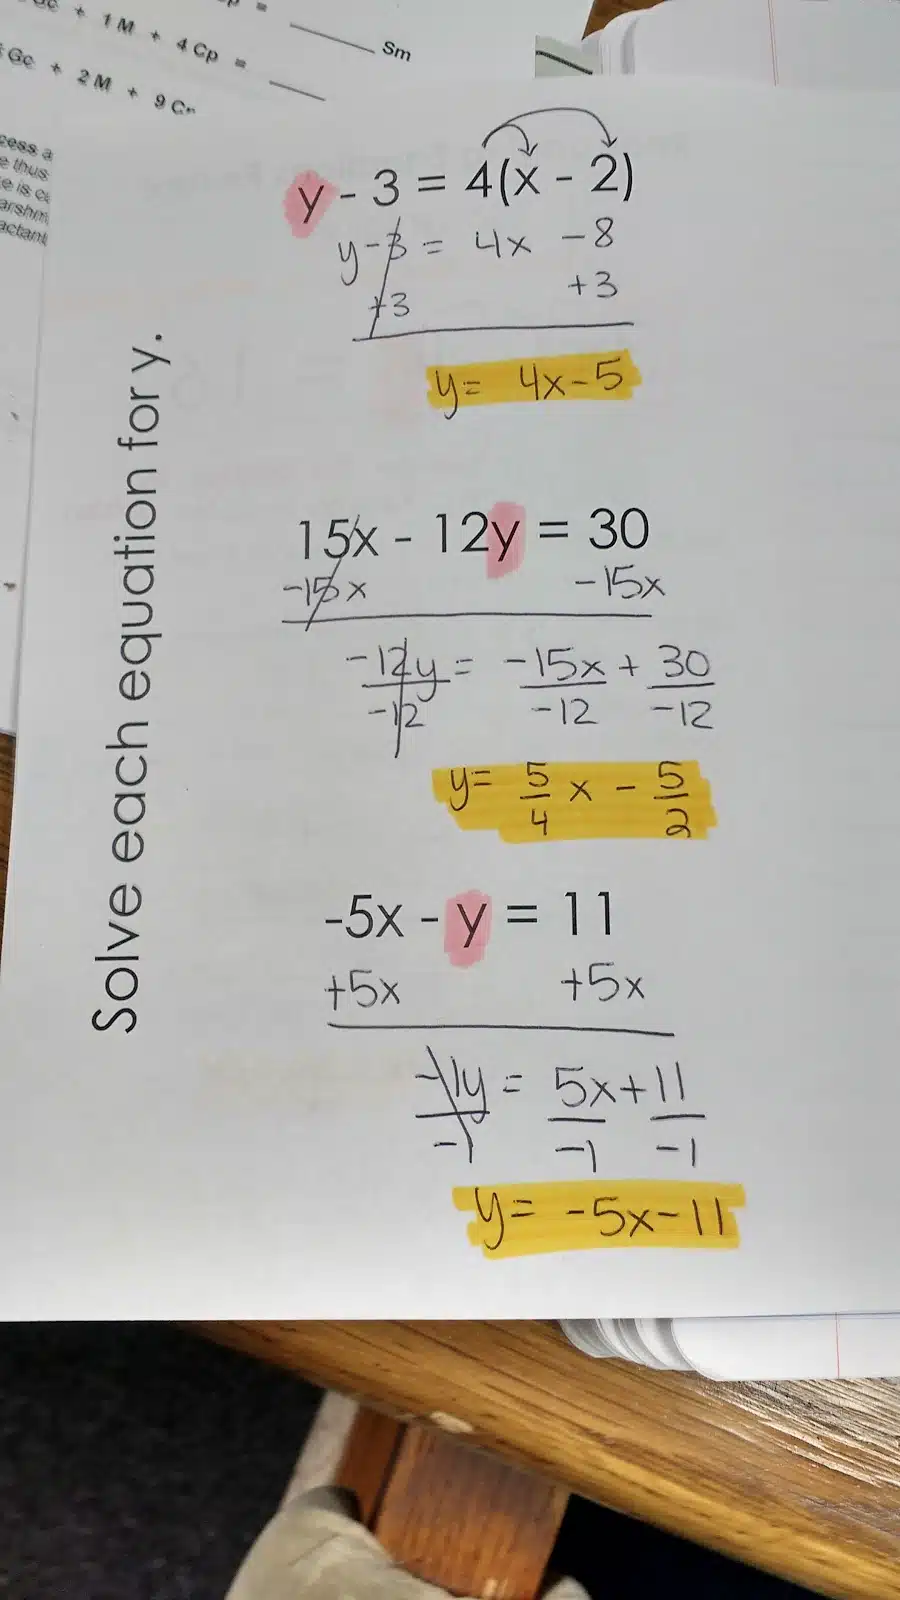 + 1M + 4Cp = ____
____ Sm
Gc + 2M + 9
cess a
thus
e is
Solve each equation for y.
y - 3 = 4(x - 2)
y - 3 = 4x - 8
+3 +3
y = 4x - 5
15x - 12y = 30
-15x -15x
-12y = -15x + 30
-12 -12 -12
y = 5/4 x - 5/2
-5x - y = 11
+5x +5x
-1y = 5x + 11
-1 -1 -1
y = -5x - 11